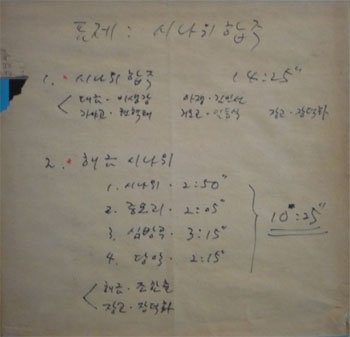 표제: 시나위 합주
1. 시나위 합주 14:25"
대금·이생강 아쟁·김일선
가야고·원한기 거문고· 장고·장덕화
2. 해금 시나위
1. 시나위· 2:50"
2. 중모리· 2:05"
3. 심방곡· 3:15"
4. 당악· 2:15"
10":25"
해금·조한술
장고·장덕화